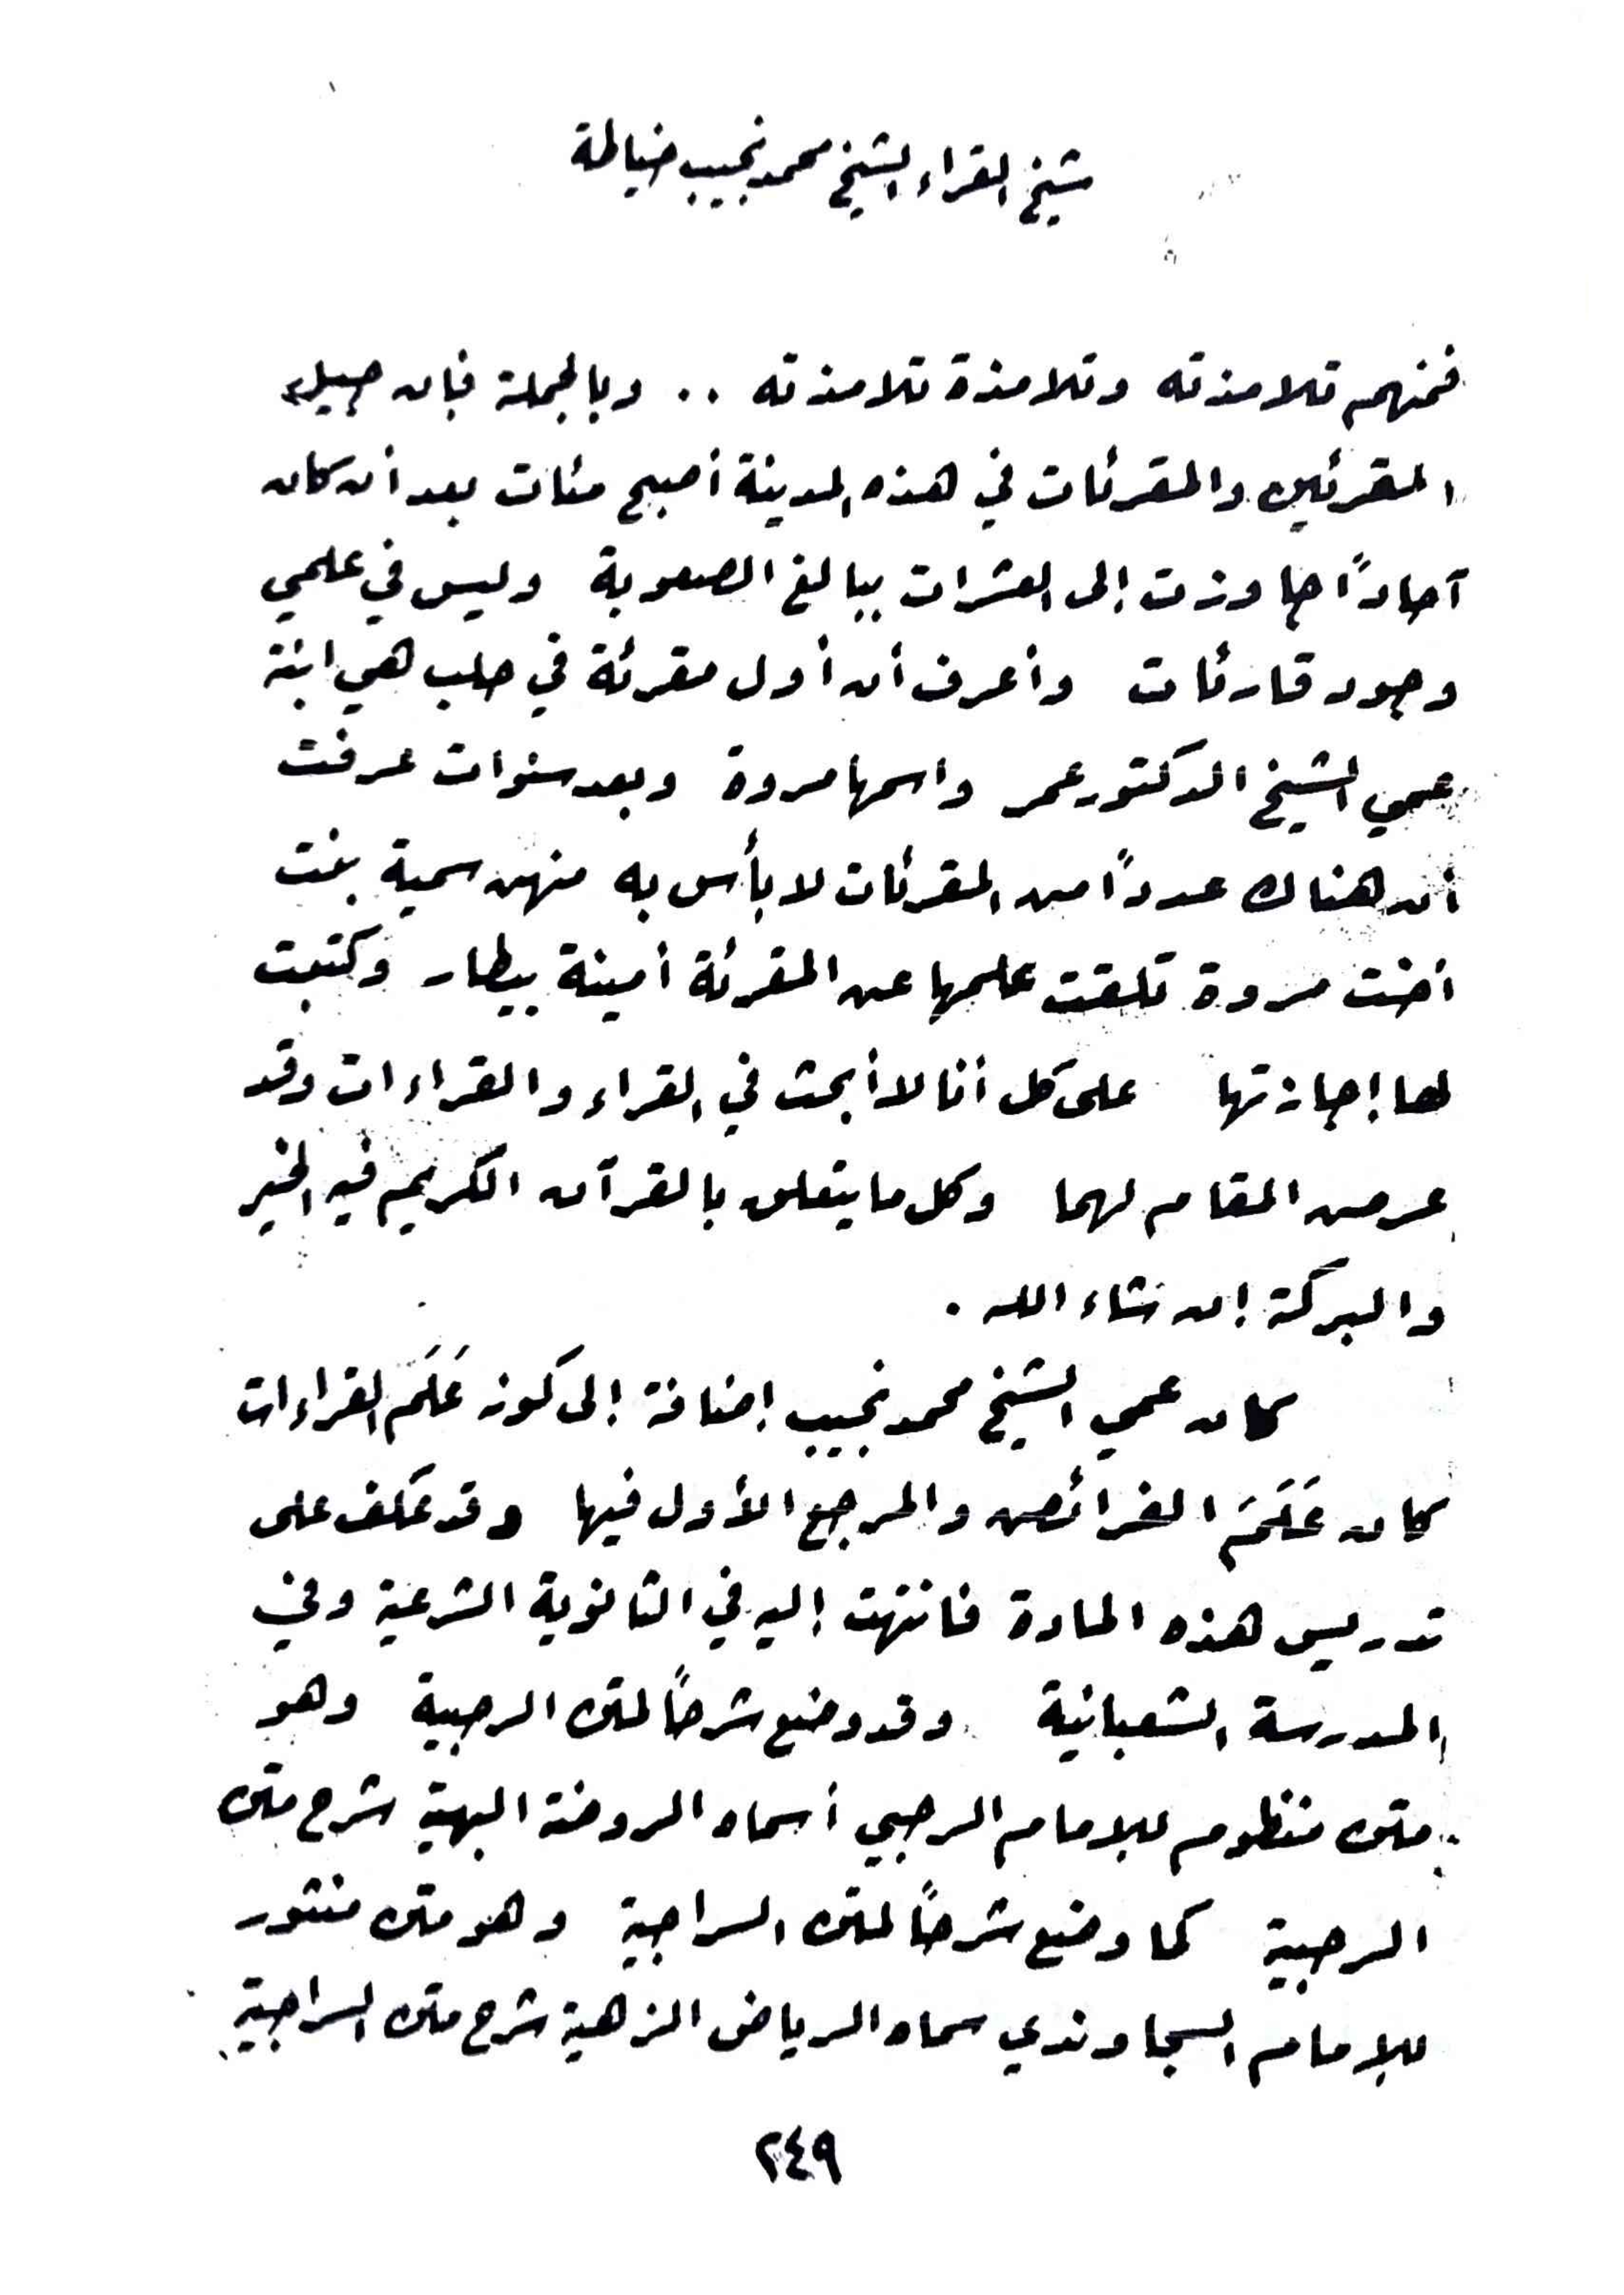 شيخ القراء الشيخ محمد نجيب خياطة
فمنهم تلامذته وتلامذة تلامذته .. وبالجملة فإن جيل
المقرئين والمقرئات في هذه المدينة أصبح مئات بعد أن كان
آحاداً جاوزت إلى العشرات ببالغ الصعوبة وليس في علمي
وجود قارئات وأعرف أن أول مقرئة في حلب هي ابنة
عمي الشيخ الدكتور عمر واسمها مروة وبعد سنوات عرفت
أن هناك عدداً من المقرئات لا بأس به منهن سمية بنت
أخت مروة تلقت علمها عن المقرئة أمينة بيطار وكتبت
لها إجازتها على كل أنا لا أبحث في القراء والقراءات وقد
عرض المقام لهما وكل ما يتعلق بالقرآن الكريم فيه الخير
والبركة إن شاء الله .
كان عمي الشيخ محمد نجيب إضافة إلى كونه عَلَم القراءات
كان عَلَمَ الفرائض والمرجع الأول فيها وقد عكف على
تدريس هذه المادة فانتهت إليه في الثانوية الشرعية وفي
المدرسة الشعبانية وقد وضع شرحاً لمتن الرحبية وهو
متن منظوم للإمام الرحبي أسماه الروضة البهية شرح متن
الرحبية كما وضع شرحاً لمتن السراجية وهو متن منثور
للإمام السجاوندي سماه الرياض الزهية شرح متن السراجية
٢٤٩